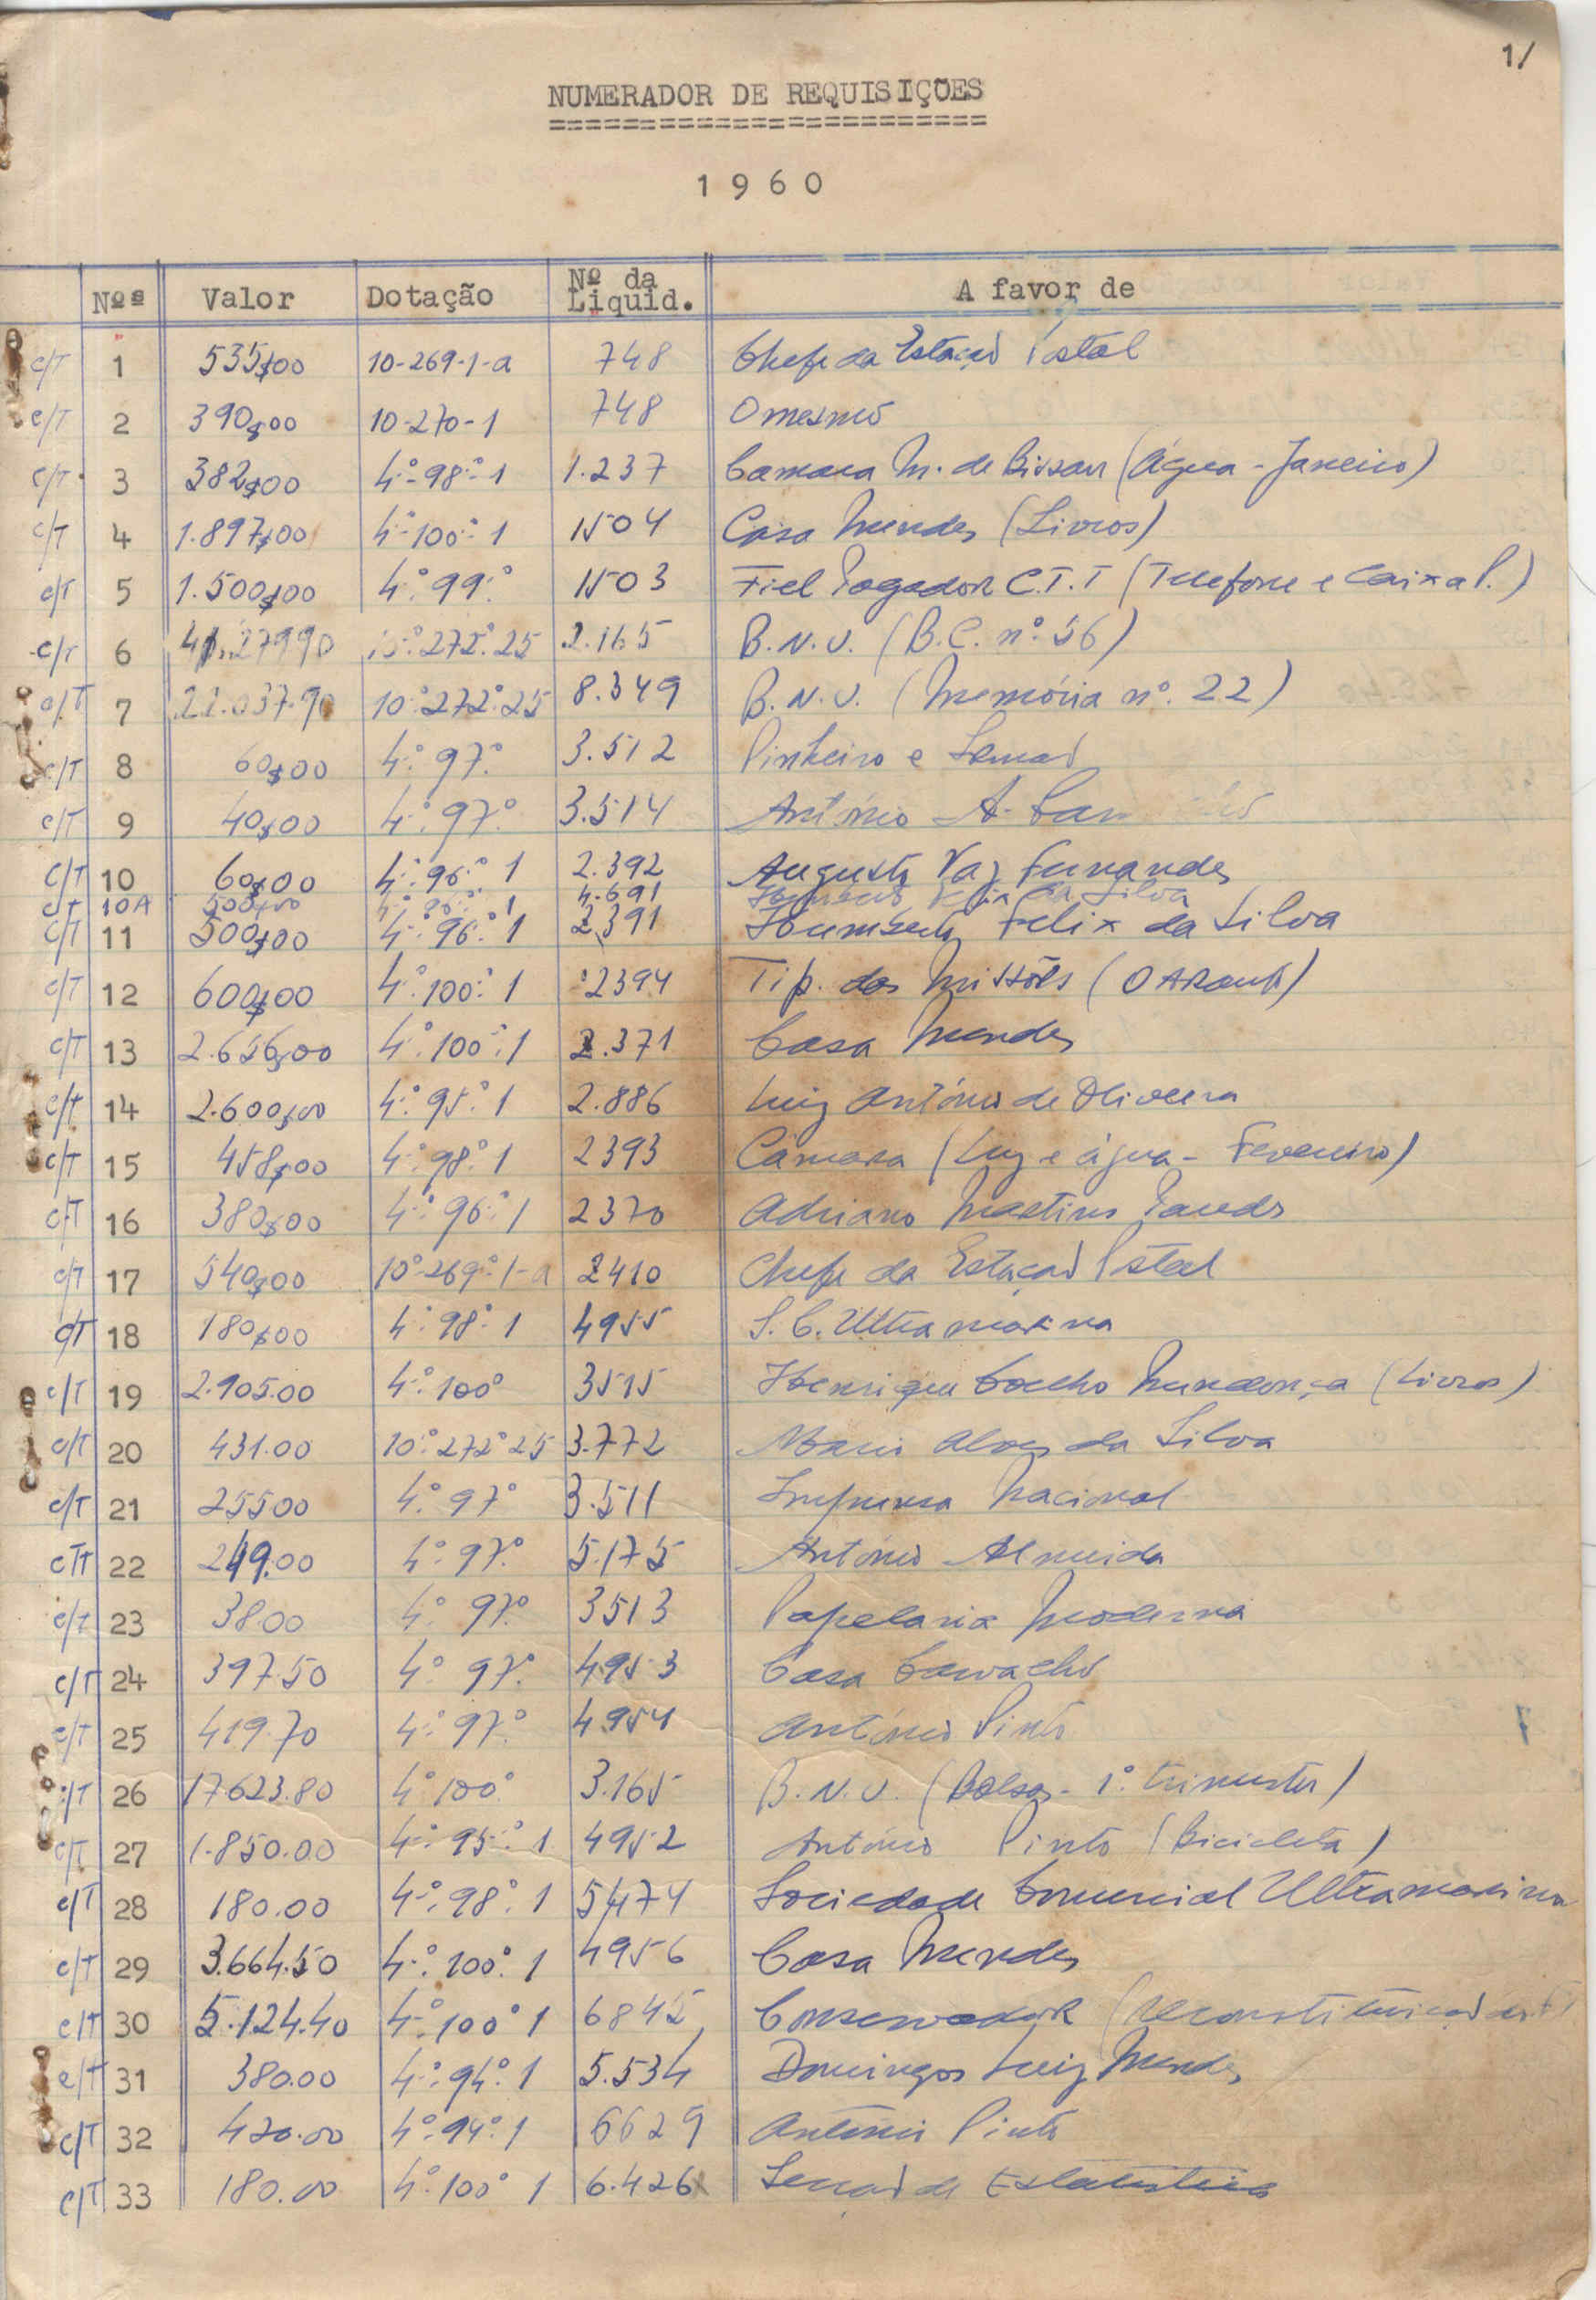 1/
NUMERADOR DE REQUISIÇÕES
=========================
1 9 6 0
Nºs Valor Dotação Nº da Liquid. A favor de
c/T 1 535$00 10-269-1-a 748 Chefe da Estação Postal
c/T 2 390$00 10-270-1 748 O mesmo
c/T 3 382$00 4.º-98.º-1 1.237 Camara M. de Bissau (Água - Janeiro)
c/T 4 1.897$00 4.º-100.º-1 1504 Casa Mendes (Livros)
c/T 5 1.500$00 4.º 99.º 1503 Fiel Pagador C.T.T (Telefone e Caixa P.)
c/T 6 10.º 272.º 25 2.165 B.N.U. (B.C. nº. 56)
c/T 7 22.037.90 10.º 272.º 25 8.349 B.N.U. (Memória nº. 22)
c/T 8 60$00 4.º 97.º 3.512 Pinheiro e
c/T 9 40$00 4.º 97.º 3.514 António A.
c/T 10 60$00 4.º 96.º 1 2.392 Augusto Vaz Fernandes
c/T 10A 500$00 4.691 Humberto Felix da Silva
c/T 11 500$00 4.º 96.º 1 2391 Humberto Felix da Silva
c/T 12 600$00 4.º 100.º 1 2394 Tip. das Missões (O Arauto)
c/T 13 2.656$00 4.º 100.º 1 2.371 Casa Mendes
c/t 14 2.600$00 4.º 95.º 1 2.886 Luiz António de Oliveira
c/T 15 458$00 4.º 98.º 1 2393 Câmara (Luz e água - Fevereiro)
c/T 16 380$00 4.º 96.º 1 2370 Adriano Martins
c/T 17 540$00 10º-269.º-1-a 2410 Chefe da Estação Postal
c/T 18 180$00 4.º 98.º 1 4955 S.C. Ultramarina
c/T 19 2.905.00 4.º 100º 3515 Henrique Coelho Mendonça (Livros)
c/T 20 431.00 10.º 272º 25 3.772 Mario Alves da Silva
c/T 21 255.00 4.º 97º 3.511 Imprensa Nacional
c/T 22 249.00 4.º 97.º 5.175 António Almeida
c/t 23 38.00 4.º 97.º 3513 Papelaria Moderna
c/T 24 397.50 4.º 97.º 4953 Casa
c/T 25 419.70 4.º 97.º 4954 António Pinto
c/T 26 17.623.80 4.º 100.º 3.165 B.N.U. (Bolsas - 1.º trimestre)
c/T 27 1.850.00 4.º 95.º 1 4952 António Pinto (Bicicleta)
c/T 28 180.00 4.º 98.º 1 5474 Sociedade Comercial Ultramarina
c/T 29 3.664.50 4.º 100.º 1 4956 Casa Mendes
c/T 30 5.124.40 4.º 100º 1 6845 Conservador (Reconstituição
c/T 31 380.00 4.º 94.º 1 5.534 Domingos Luiz Mendes
c/T 32 420.00 4.º 94.º 1 6629 António Pinto
c/T 33 180.00 4.º 100º 1 6.426 Secção de Estatística